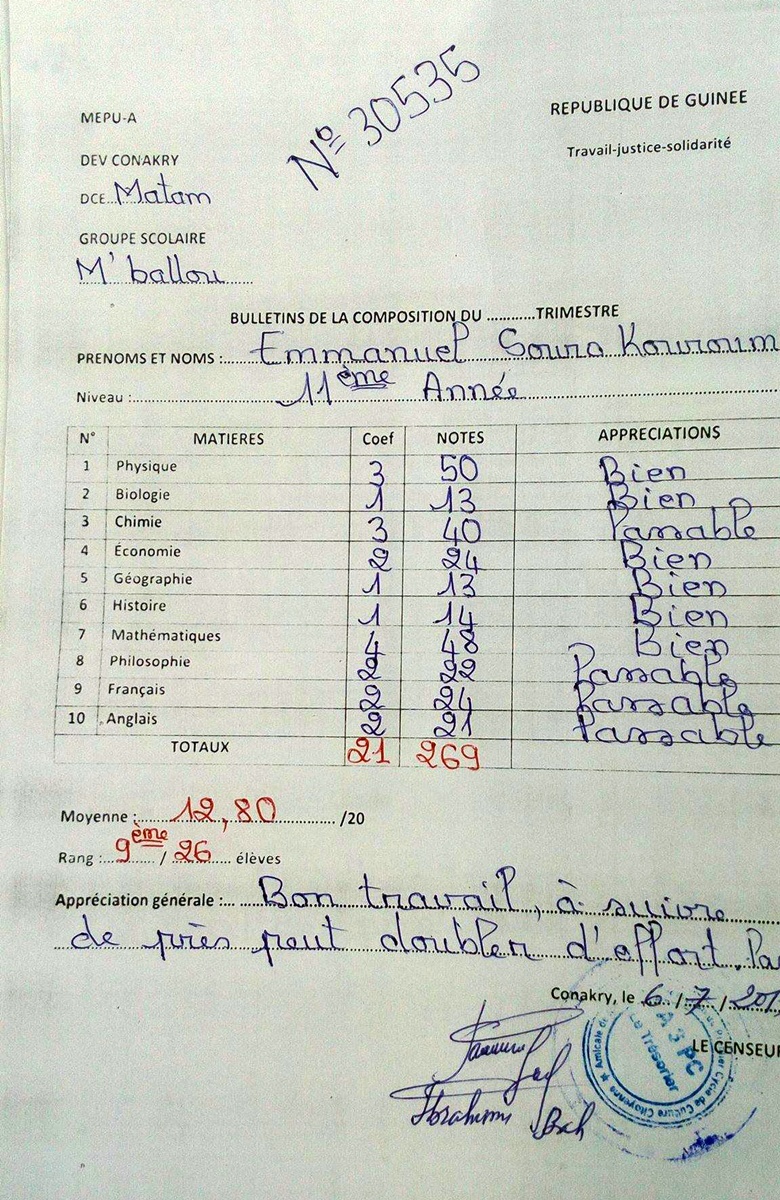 N° 30535
MEPU-A
REPUBLIQUE DE GUINEE
Travail-justice-solidarité
DEV CONAKRY
DCE...Matam
GROUPE SCOLAIRE
M'ballou
BULLETINS DE LA COMPOSITION DU ...........TRIMESTRE
PRENOMS ET NOMS :... Emmanuel Kouroum
Niveau :... 11ème Année
N° MATIERES Coef NOTES APPRECIATIONS
1 Physique 3 50 Bien
2 Biologie 1 13 Bien
3 Chimie 3 40 Passable
4 Économie 2 24 Bien
5 Géographie 1 13 Bien
6 Histoire 1 14 Bien
7 Mathématiques 4 48 Bien
8 Philosophie 2 22 Passable
9 Français 2 24 Passable
10 Anglais 2 21 Passable
TOTAUX 21 269
Moyenne :... 12,80 ... /20
Rang :.. 9ème / 26 .... élèves
Appréciation générale :... Bon travail, à suivre
de près peut doubler d'effort. Pa
Conakry, le 6 / 7 / 201
LE CENSEUR
Le Trésorier
Ibrahima Bah